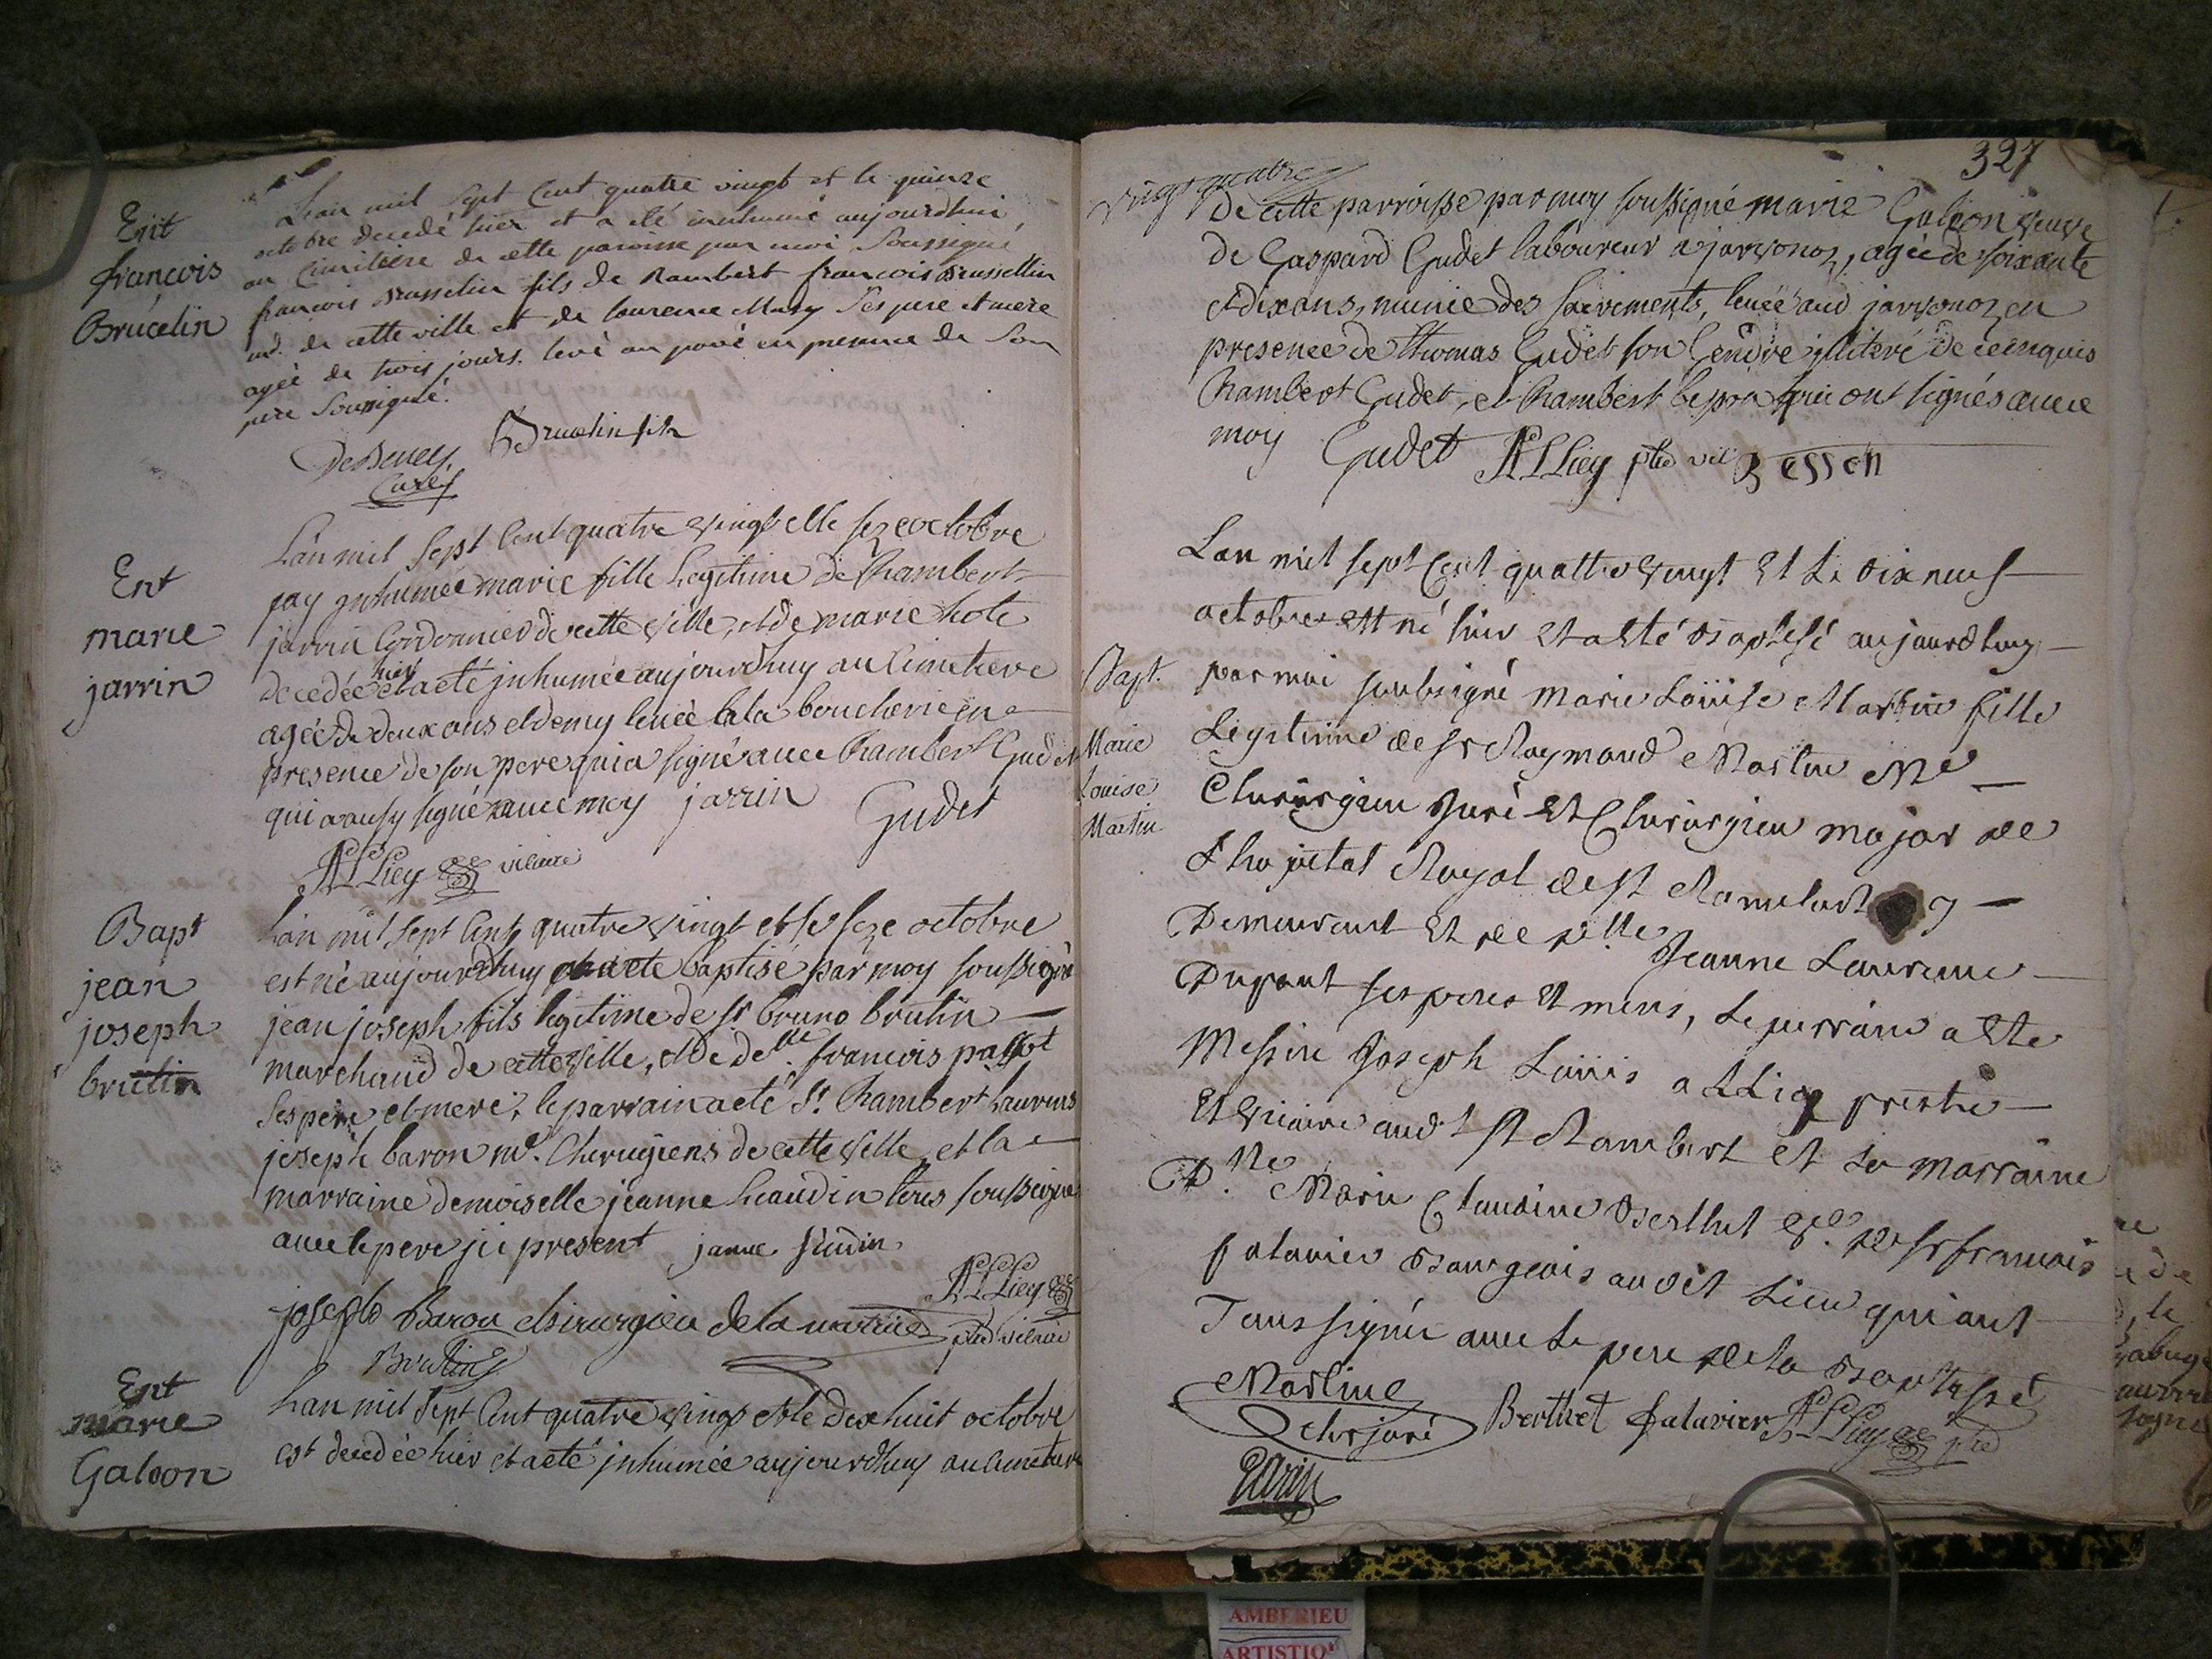 Ent
françois
Brucelin
Lan mil Sept Cent quatre vingt et le quinze
octobre decedé hier et a été inhumé aujourdhui
au Cimitiere de cette paroisse par moi Soussigné
francois Brusselin fils de Rambert francois Brussellin
md. de cette ville et de laurence Mury Ses pere et mere
agée de trois jours. levé au pavé en presence de Son
pere Soussigné.
Brucelin fils
Curé
Ent
marie
jarrin
Lan mil Sept Cent quatre vingt et le seze octobre
jay jnhumée marie fille Legitime de Rambert
jarrin Cordonnier de cette ville, et de marie hote
decedée hier et a eté jnhumée aujourdhuy au Cimetiere
agée de deux ans et demy levée a la boucherie en
presence de son pere qui a signé avec Rambert Gudet
qui a aussy signé avec moy jarrin Gudet
ALLiey vicaire
Bapt
jean
joseph
brutin
Lan mil Sept Cent quatre vingt et le seze octobre
est né aujourdhuy et a ete baptisé par moy soussigné
jean joseph fils legitime de sr bruno brutin
marchand de cette ville, et de dlle francois
ses pere et mere, le parrain a eté Sr. Rambert Laurens
joseph baron md. Chirugiens de cette ville, et la
marraine demoiselle jeanne tous soussignes
avec le pere ici present janne
ALLiey
joseph Baron chirurgien de la marine ptre vicaire
Brutin
Ent
marie
Galeon
Lan mil Sept Cent quatre vingt et le dix huit octobre
est decedée hier et a eté jnhumée aujourdhuy au Cimetiere
327
vingt quatre
de cette parroisse par moy soussigné marie Galeon veuve
de Gaspard Gudet laboureur a javornoz, agée de soixante
et dix ans, munie des sacrements, levée aud javornoz en
presence de thomas Gudet son Gendre illiteré de ce enquis
Rambert Gudet, et Rambert beson qui ont signés avec
moy Gudet ALLiey ptre vic Besson
Bapt.
Marie
Louise
Martin
Lan mil sept Cent quattre vingt Et Le dix neuf
octobre est né hier Et a Esté Baptisé aujourdhuy
par moi soubsigné marie Loüise Martin fille
Legitime de sr Raymond Martin Me
Chirurgien Juré Et Chirurgien major de
Lhopital Royal de st Rambert y
Demeurant Et de dlle Jeanne Laurence
Dupont ses peres Et meres, Le parrain a Este
Messire Joseph Loüis aLLiey prestre
Et vicaire audt st Rambert Et La marraine
Dlle Marie Claudine Berthet de sr francois
falavier Bourgeois audit Lieu qui ont
Tous signés avec Le pere de la Baptisée
Martin
chr juré Berthet falavier ALLiey ptre